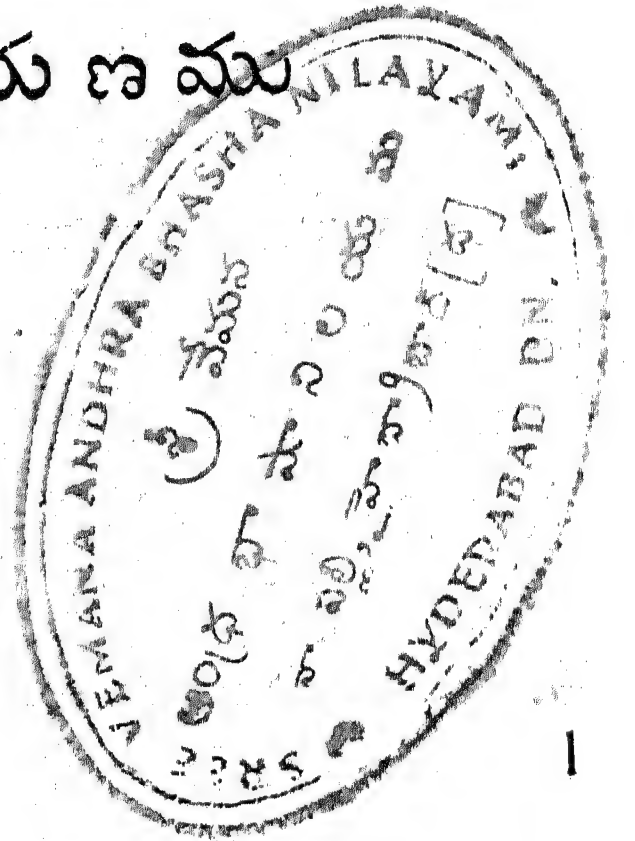 ణము
SREE VEMANA ANDHRA BHASHA NILAYAM,
HYDERABAD DN.
శ్రీ వేమన
ఆంధ్ర భాషా నిలయము